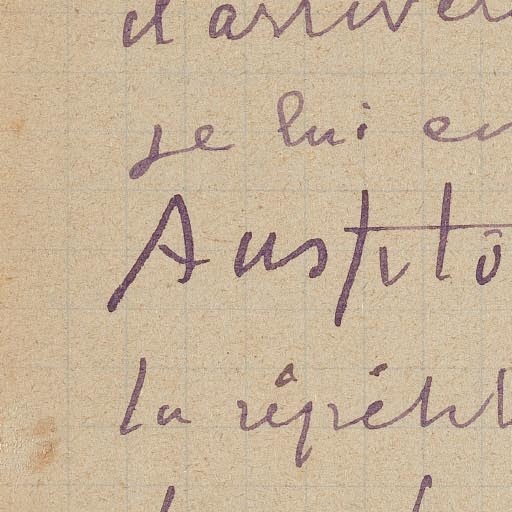 d'arriver
je lui en
Aussitô
la répétit